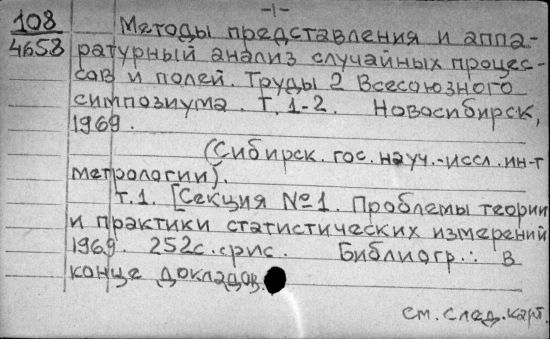 -1-
108
4658
Методы представления и аппа-
ратурный анализ случайных процес-
сов и полей. Труды 2 Всесоюзного
симпозиума. Т. 1-2. Новосибирск,
1969.
(Сибирск. гос. науч.-иссл. ин-т
метрологии).
т.1. [Секция №1. Проблемы теории
и практики статистических измерений
1969. 252с. с рис. Библиогр.: в
конце докладов.
см. след. карт.